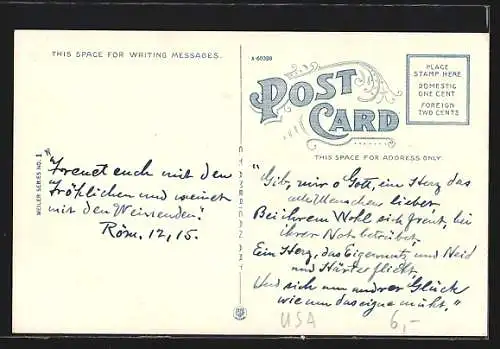 THIS SPACE FOR WRITING MESSAGES.
POST
CARD
PLACE
STAMP HERE
DOMESTIC
ONE CENT
FOREIGN
TWO CENTS
THIS SPACE FOR ADDRESS ONLY.
MEILER SERIES NO. 1
"Freuet euch mit den
Fröhlichen und weinet
mit den Weinenden!
Röm. 12, 15.
"Gib, mir o Gott, ein Herz das
alle Menschen liebet
Bei ihrem Wohl sich freut, bei
ihrer Not betrübet,
Ein Herz, das Eigennutz und Neid
und Härte flieht,
Und sich um andrer Glück
wie um das eigne müht."
USA 6,-